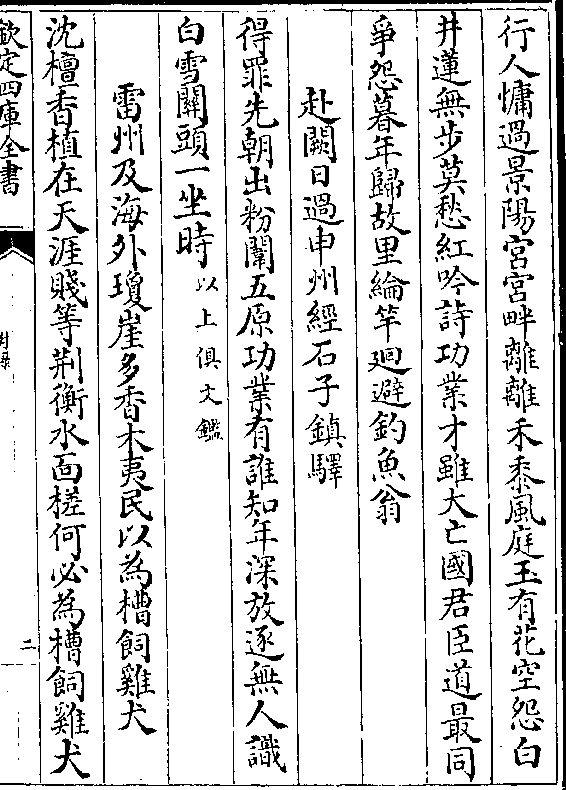 行人慵過景陽宮宮畔離離禾黍風庭玉有花空怨白
井蓮無步莫愁紅吟詩功業才雖大亡國君臣道最同
爭怨暮年歸故里綸竿迴避釣魚翁
赴闕日過申州經石子鎮驛
得罪先朝出粉闈五原功業有誰知年深放逐無人識
白雪關頭一坐時以上俱文鑑
雷州及海外瓊崖多香木夷民以為槽飼雞犬
沈檀香植在天涯賤等荆衡水面槎何必為槽飼雞犬
欽定四庫全書
二